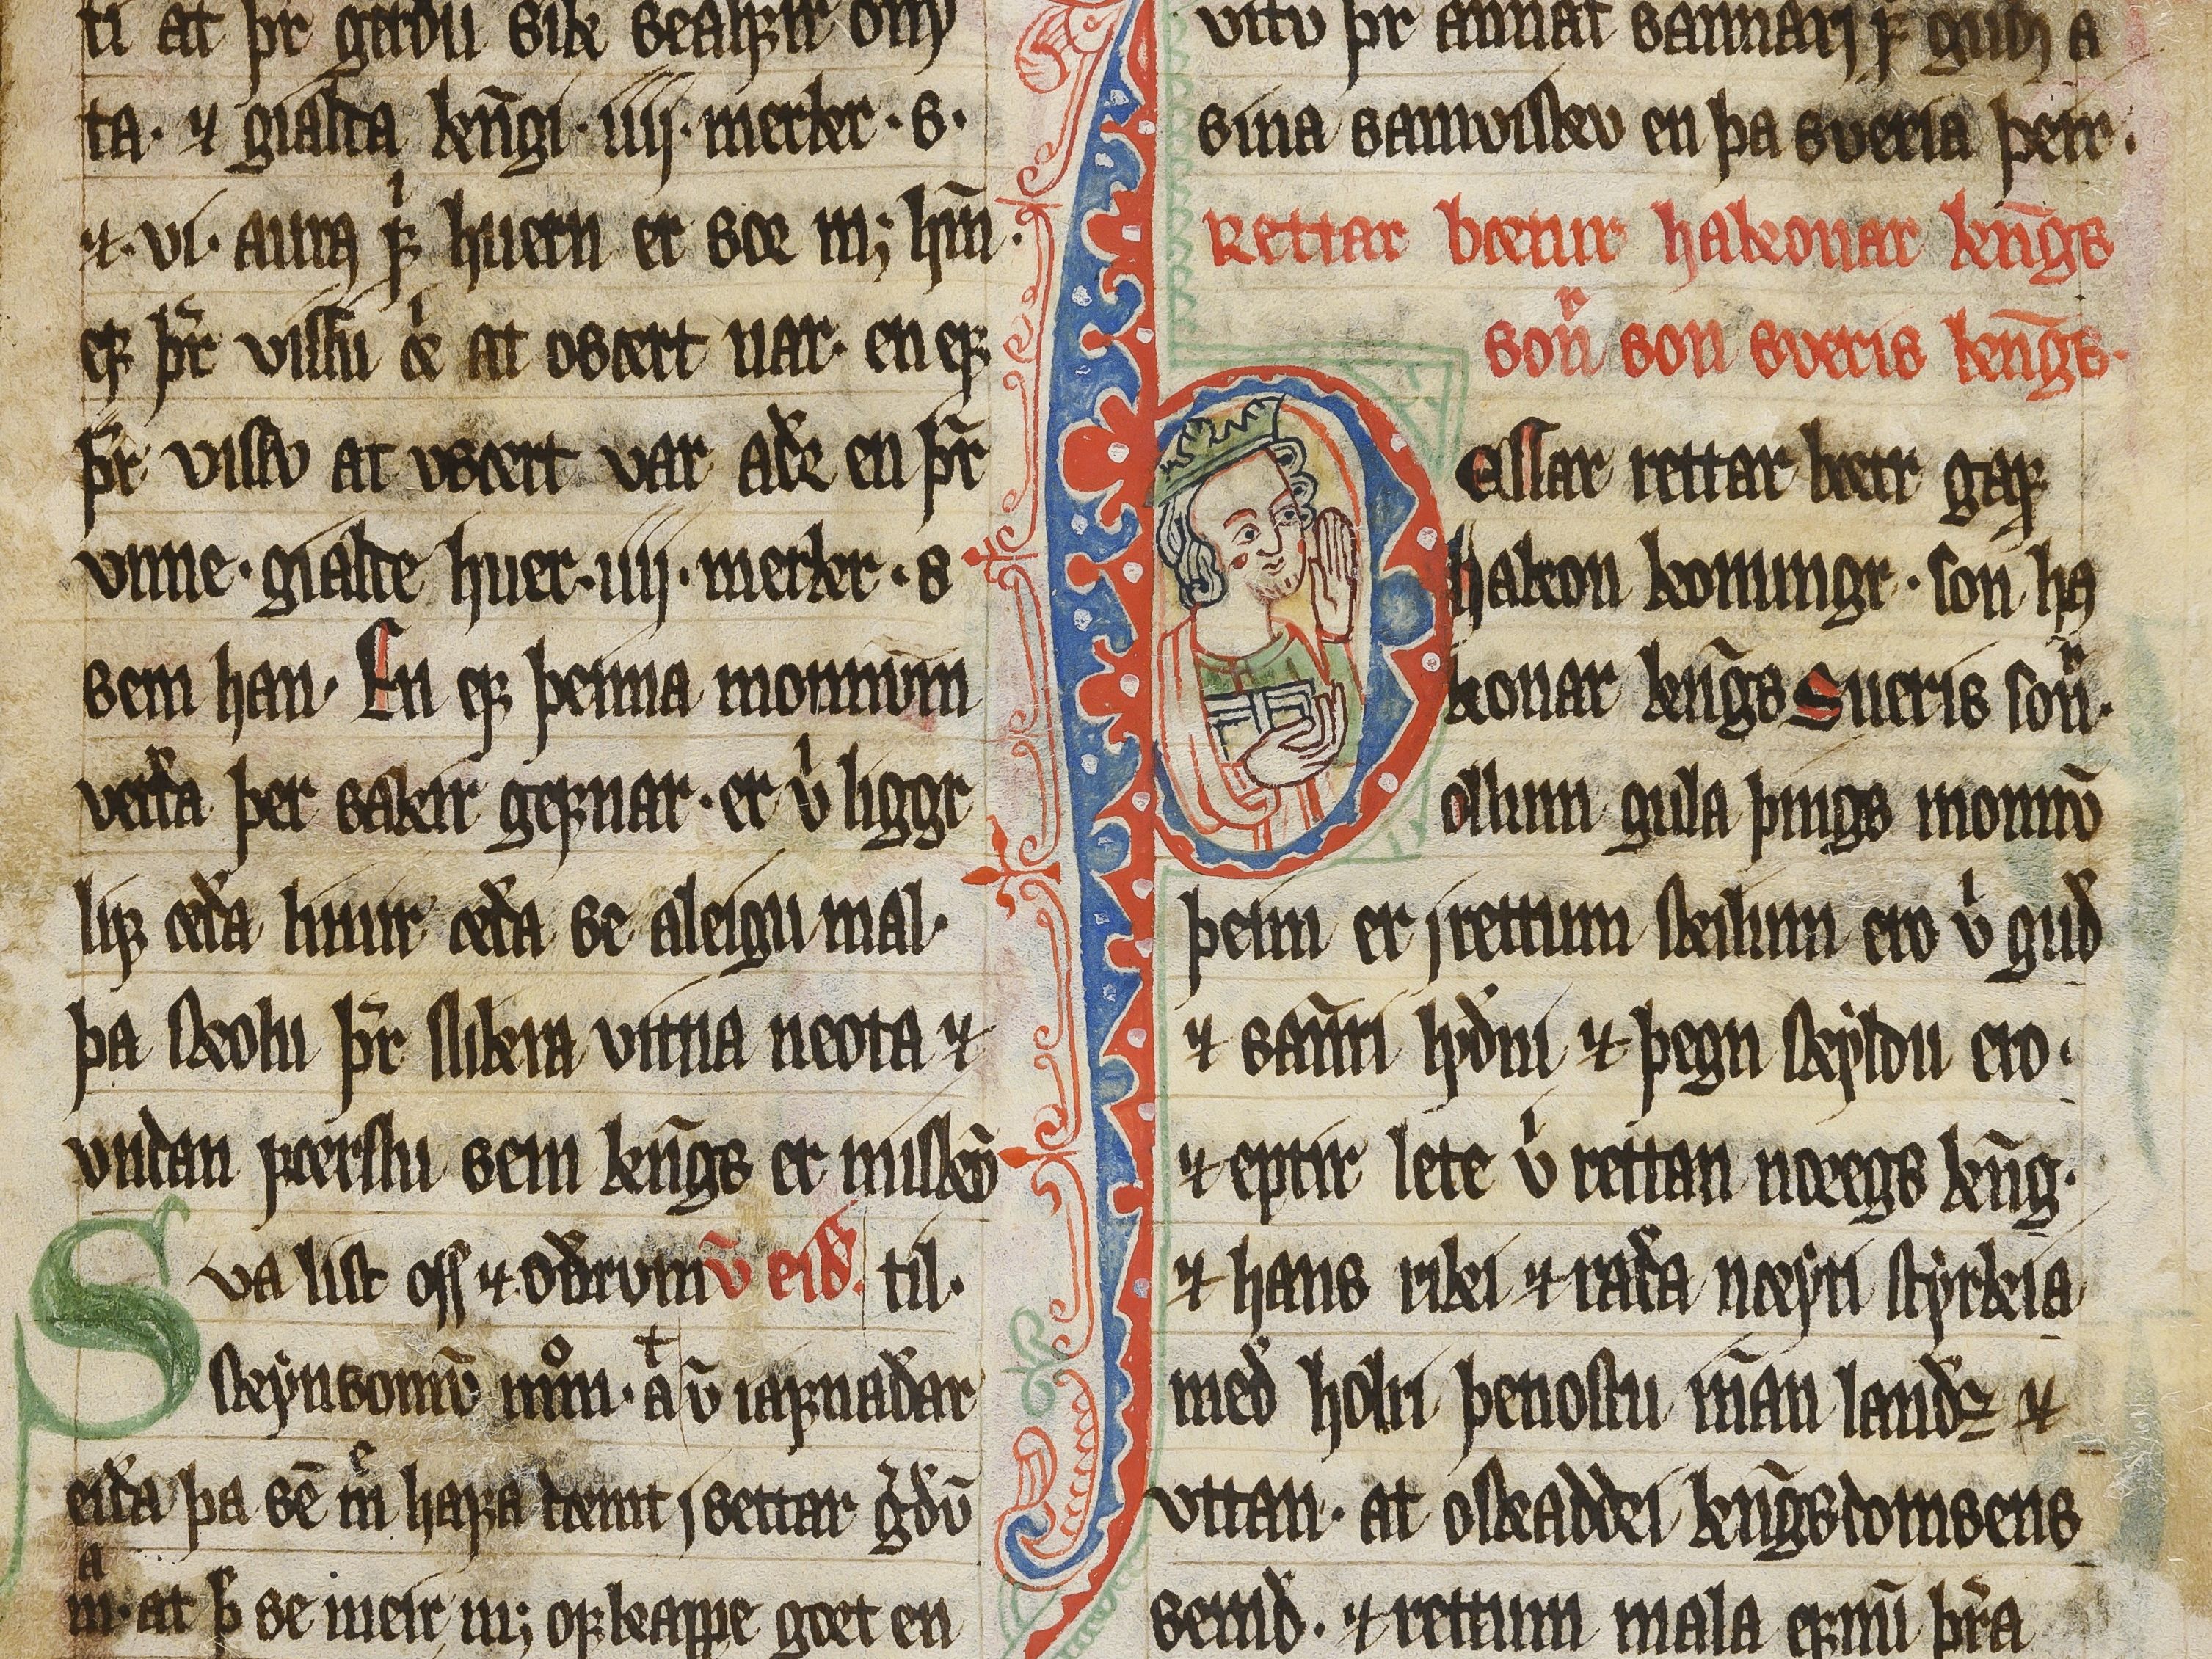 ti at þr gerðu sik sealfir om
ta. ⁊ gialda kn̄gi. iiij. merker. s.
⁊. vi. aura huern er sor m; hm̄.
ef þr̄ vissu at osœrt uar. en ef
þr̄ vissv at vsœrt var aðr en þr̄
vnne. gialde huer. iiij. merker. s
sem han. En ef þenna monnum
verða þer sakir gefnar. er v liggr
lif œða limir œða se aleigu mal.
þa skolu þr̄ slikra vittna neota ⁊
vndan fœrslu sem kn̄gs er miskv̄
Sva list oss ⁊ oðrum v̄ eið. til.
skynsomv̄ mm. a v̄ iafnaðar
eiða þa sē m̄ hafa dœmt j settar gðū
m. at se meir m; ofkappe gœt en
vitv þr annat sannari f guði a
sina samvisku en þa sveria þeir.
Rettar bœtur hakonar kn̄gs
son son sveris kn̄gs.
Þessar rettar bœtr gaf
hakon konungr. son ha
konar kn̄gs Sueris son.
ollum gula þings monnv̄
þeim er j rettum skilum ero v guð
⁊ sanni hyðni ⁊ þegn skyldu ero.
⁊ eptir lete v rettan noregs kn̄g.
⁊ hans riki ⁊ raða nœyti styrkia
með holri þenostu in̄an landz ⁊
vttan. at oskaddri kn̄gsdomsens
semð. ⁊ rettum mala efnū þr̄a